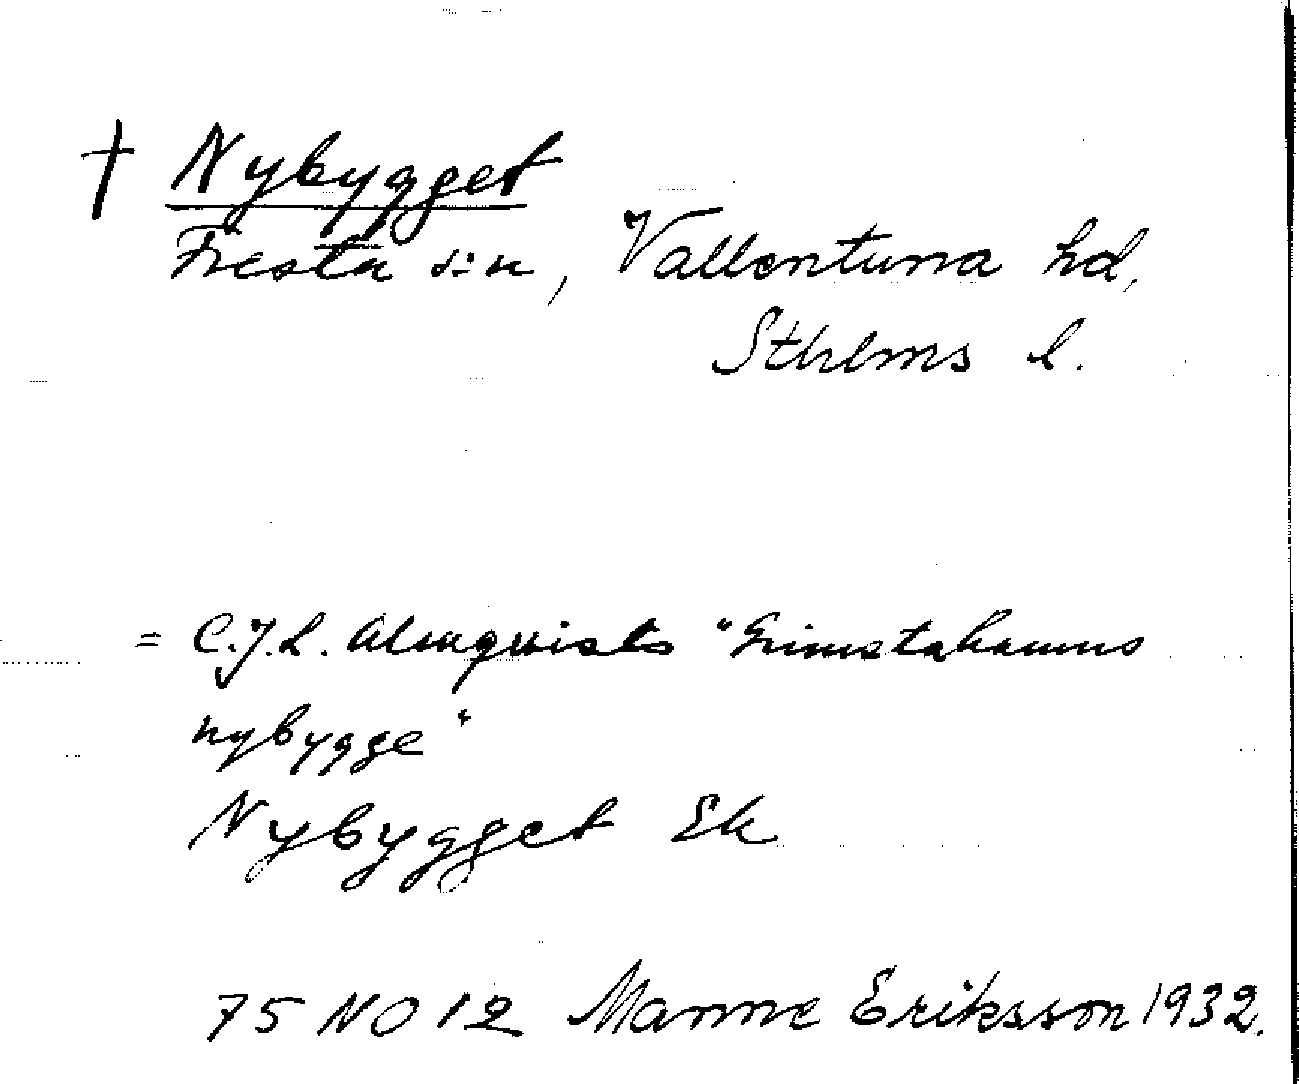 † Nybygget
Fresta s:n, Vallentuna hd,
Sthlms l.
= C.J.L. Almqvists "Grimstahamns
nybygge"
Nybygget Ek
75 NO 12 Manne Eriksson 1932.